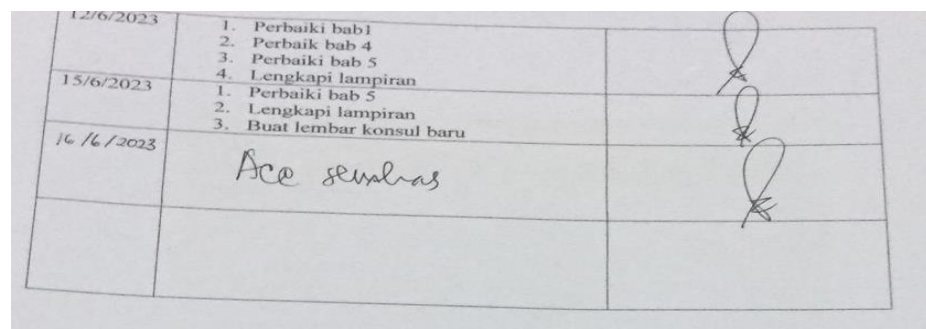 12/6/2023
1. Perbaiki bab1
2. Perbaik bab 4
3. Perbaiki bab 5
4. Lengkapi lampiran
15/6/2023
1. Perbaiki bab 5
2. Lengkapi lampiran
3. Buat lembar konsul baru
16/6/2023
Acc semhas